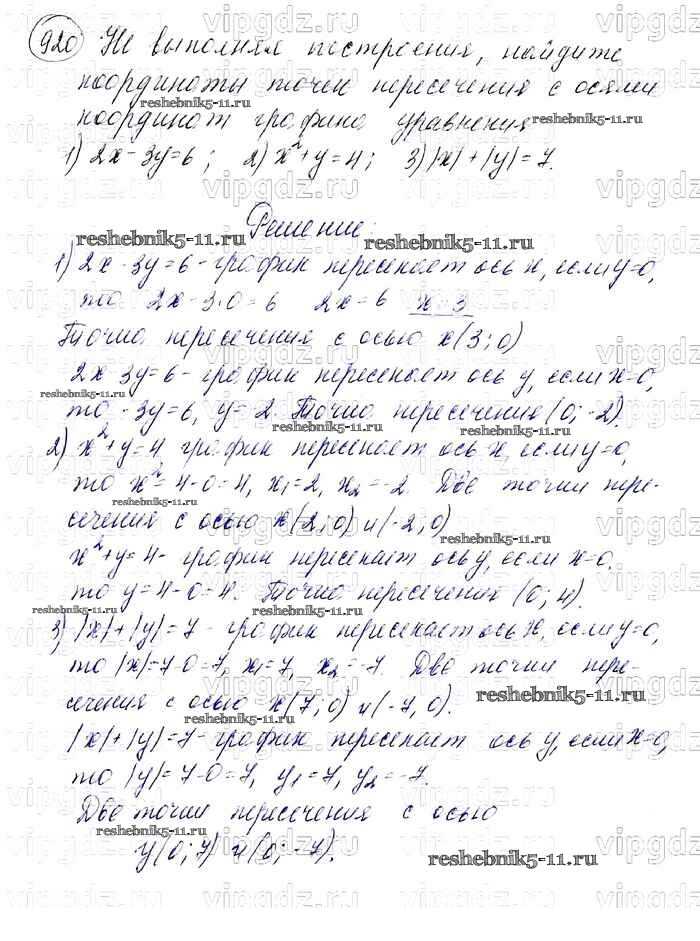 920 Не выполняя построения, найдите
координаты точек пересечения с осями
координат графика уравнения
1) 2x - 3y = 6; 2) x² + y = 4; 3) |x| + |y| = 7.
Решение:
1) 2x - 3y = 6 - график пересекает ось x, если y=0,
то 2x - 3·0 = 6 2x = 6 x = 3
Точка пересечения с осью x (3; 0)
2x - 3y = 6 - график пересекает ось y, если x=0,
то -3y = 6, y = -2. Точка пересечения (0; -2).
2) x² + y = 4 график пересекает ось x, если y=0,
то x² = 4 - 0 = 4, x₁ = 2, x₂ = -2. Две точки пере-
сечения с осью x (2; 0) и (-2; 0)
x² + y = 4 - график пересекает ось y, если x=0.
то y = 4 - 0 = 4. Точка пересечения (0; 4).
3) |x| + |y| = 7 - график пересекает ось x, если y=0,
то |x| = 7 - 0 = 7, x₁ = 7, x₂ = -7. Две точки пере-
сечения с осью x (7; 0) и (-7, 0).
|x| + |y| = 7 - график пересекает ось y, если x=0,
то |y| = 7 - 0 = 7, y₁ = 7, y₂ = -7.
Две точки пересечения с осью
y (0; 7) и (0; -7).
vipgdz.ru
reshebnik5-11.ru